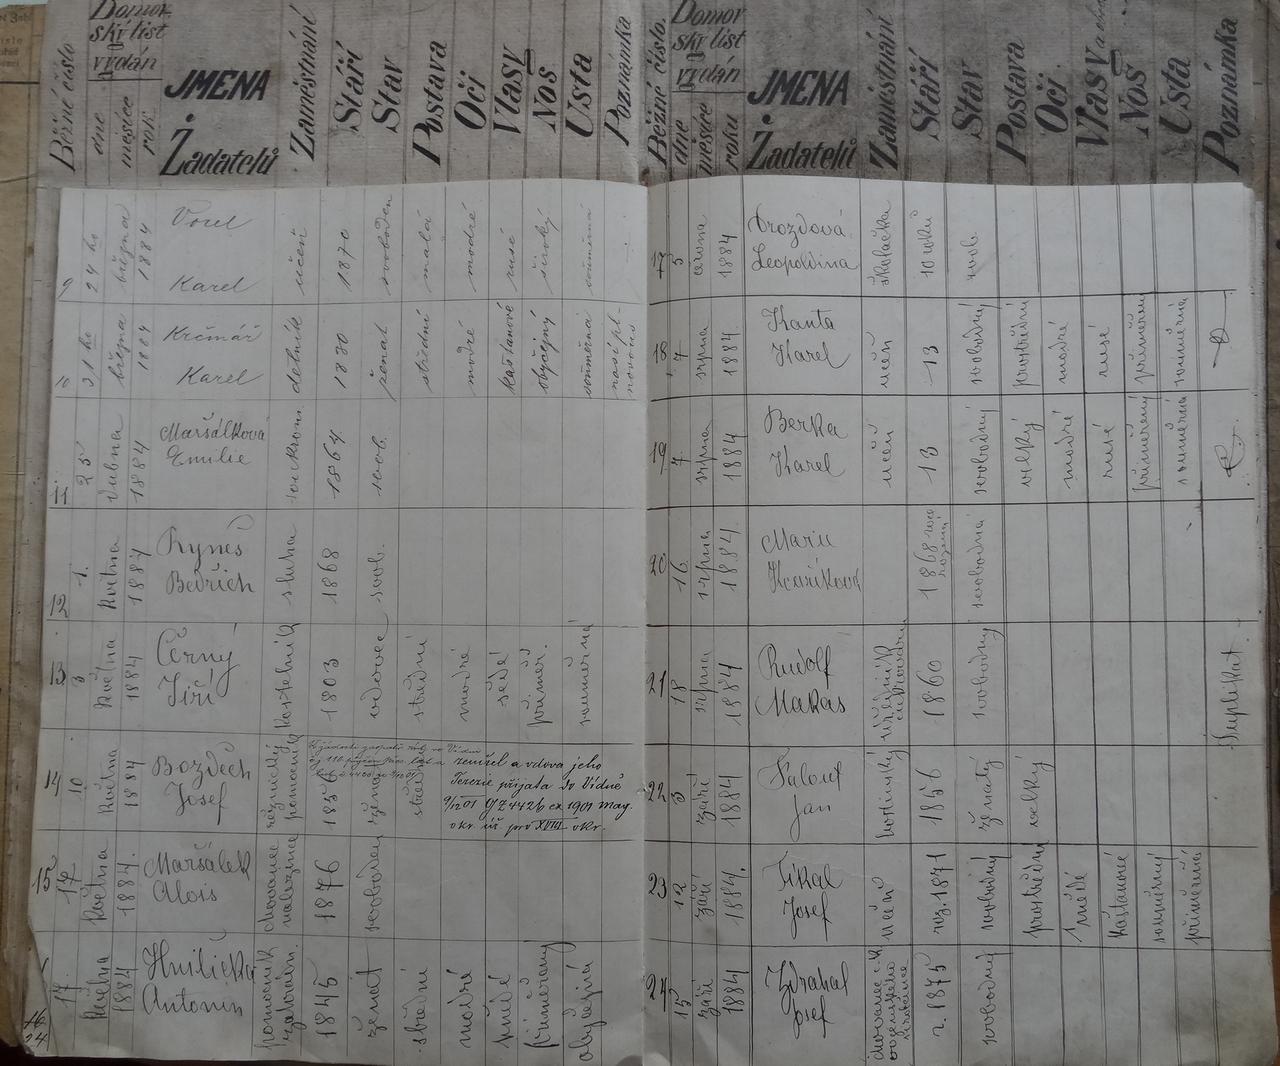 Běžné číslo
Domov
ský list
vydán
dne
měsíce
rok
JMENA
Žadatelů
Zaměstnání
Stáří
Stav
Postava
Oči
Vlasy
Nos
Usta
Poznámka
9
24 ho
března
1884
Vorel
Karel
učeň
1870
svoboden
malá
modré
rusé
široký
souměrná
10
31 ho
března
1884
Krčmář
Karel
dělník
1830
ženat
střední
modré
kaštanové
obyčejný
souměrná
11
25
dubna
1884
Maršálková
Emilie
soukrom.
1864
svob.
12
1.
května
1884
Ryneš
Bedřich
sluha
1868
svob.
13
3
května
1884
Černý
Jiří
kostelník
1803
vdovec
střední
modré
šedé
přiměř.
souměrná
14
10
května
1884
Bozděch
Josef
řeznický
pomocník
zemřel a vdova jeho
Terezie přijata do Vídně
9/12 01 GZ 4426 ex 1901 mag.
okr. úř. pro XVIII okr.
15
17
května
1884.
Maršálek
Alois
chovanec
nalezince
1876
svoboden
17
května
1884
Hnilička
Antonin
pomocník
1845
ženat
střední
modré
hnědé
přiměřený
obyčejná
16
24
Běžné číslo.
Domov
ský list
vydán
dne
měsíce
roku
JMENA
Žadatelů
Zaměstnání
Stáří
Stav
Postava
Oči
Vlasy
Nos
Usta
Poznámka
17
3
června
1884
Drozdová
Leopoldina
školačka
10 roků
svob.
18
7
srpna
1884
Kanta
Karel
učeň
13
svobodný
prostřední
modré
rusé
přiměřený
souměrná
19
7
srpna
1884
Berka
Karel
učeň
13
svobodný
velký
modré
rusé
přiměřený
souměrná
20
16
srpna
1884.
Marie
1868
svobodná
21
18
srpna
1884
Rudolf
Makas
úředník
cukrovaru
1860
svobodný
Duplikat.
22
3
září
1884
Falout
Jan
hostinský
1856
ženatý
velký
23
12
září
1884.
Tikal
Josef
učeň
roz. 1871
svobodný
prostřední
hnědé
kaštanové
souměrný
přiměřená
24
15
září
1884
Zdrahal
Josef
chovanec c.k.
vojenského
sirotčince
r. 1875
svobodný